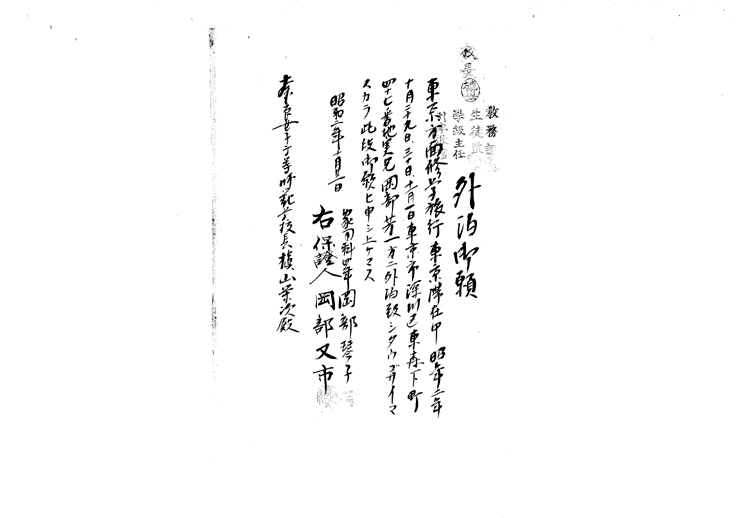 校長
教務
生徒監
學級主任
外泊御願
東京方面修学旅行東京滞在中昭和二年
十月二十九日、三十日、十一月一日東京市深川区東森下町
四十七番地実兄岡部芳一方ニ外泊致シタウゴザイマ
スカラ此段御願ヒ申シ上ゲマス
昭和二年十月 日
家事科四年 岡部琴子
右保證人 岡部又市
奈良女子高等師範学校長槇山栄次殿